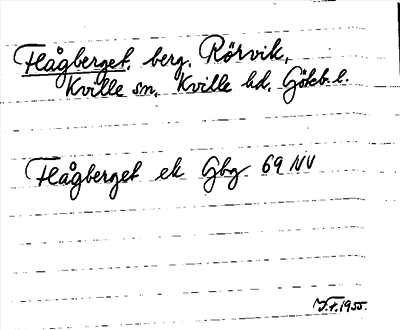 Flågberget, berg, Rörvik,
Kville sn, Kville hd, Göteb. l.
Flågberget ek Gbg 69 NV
1955.